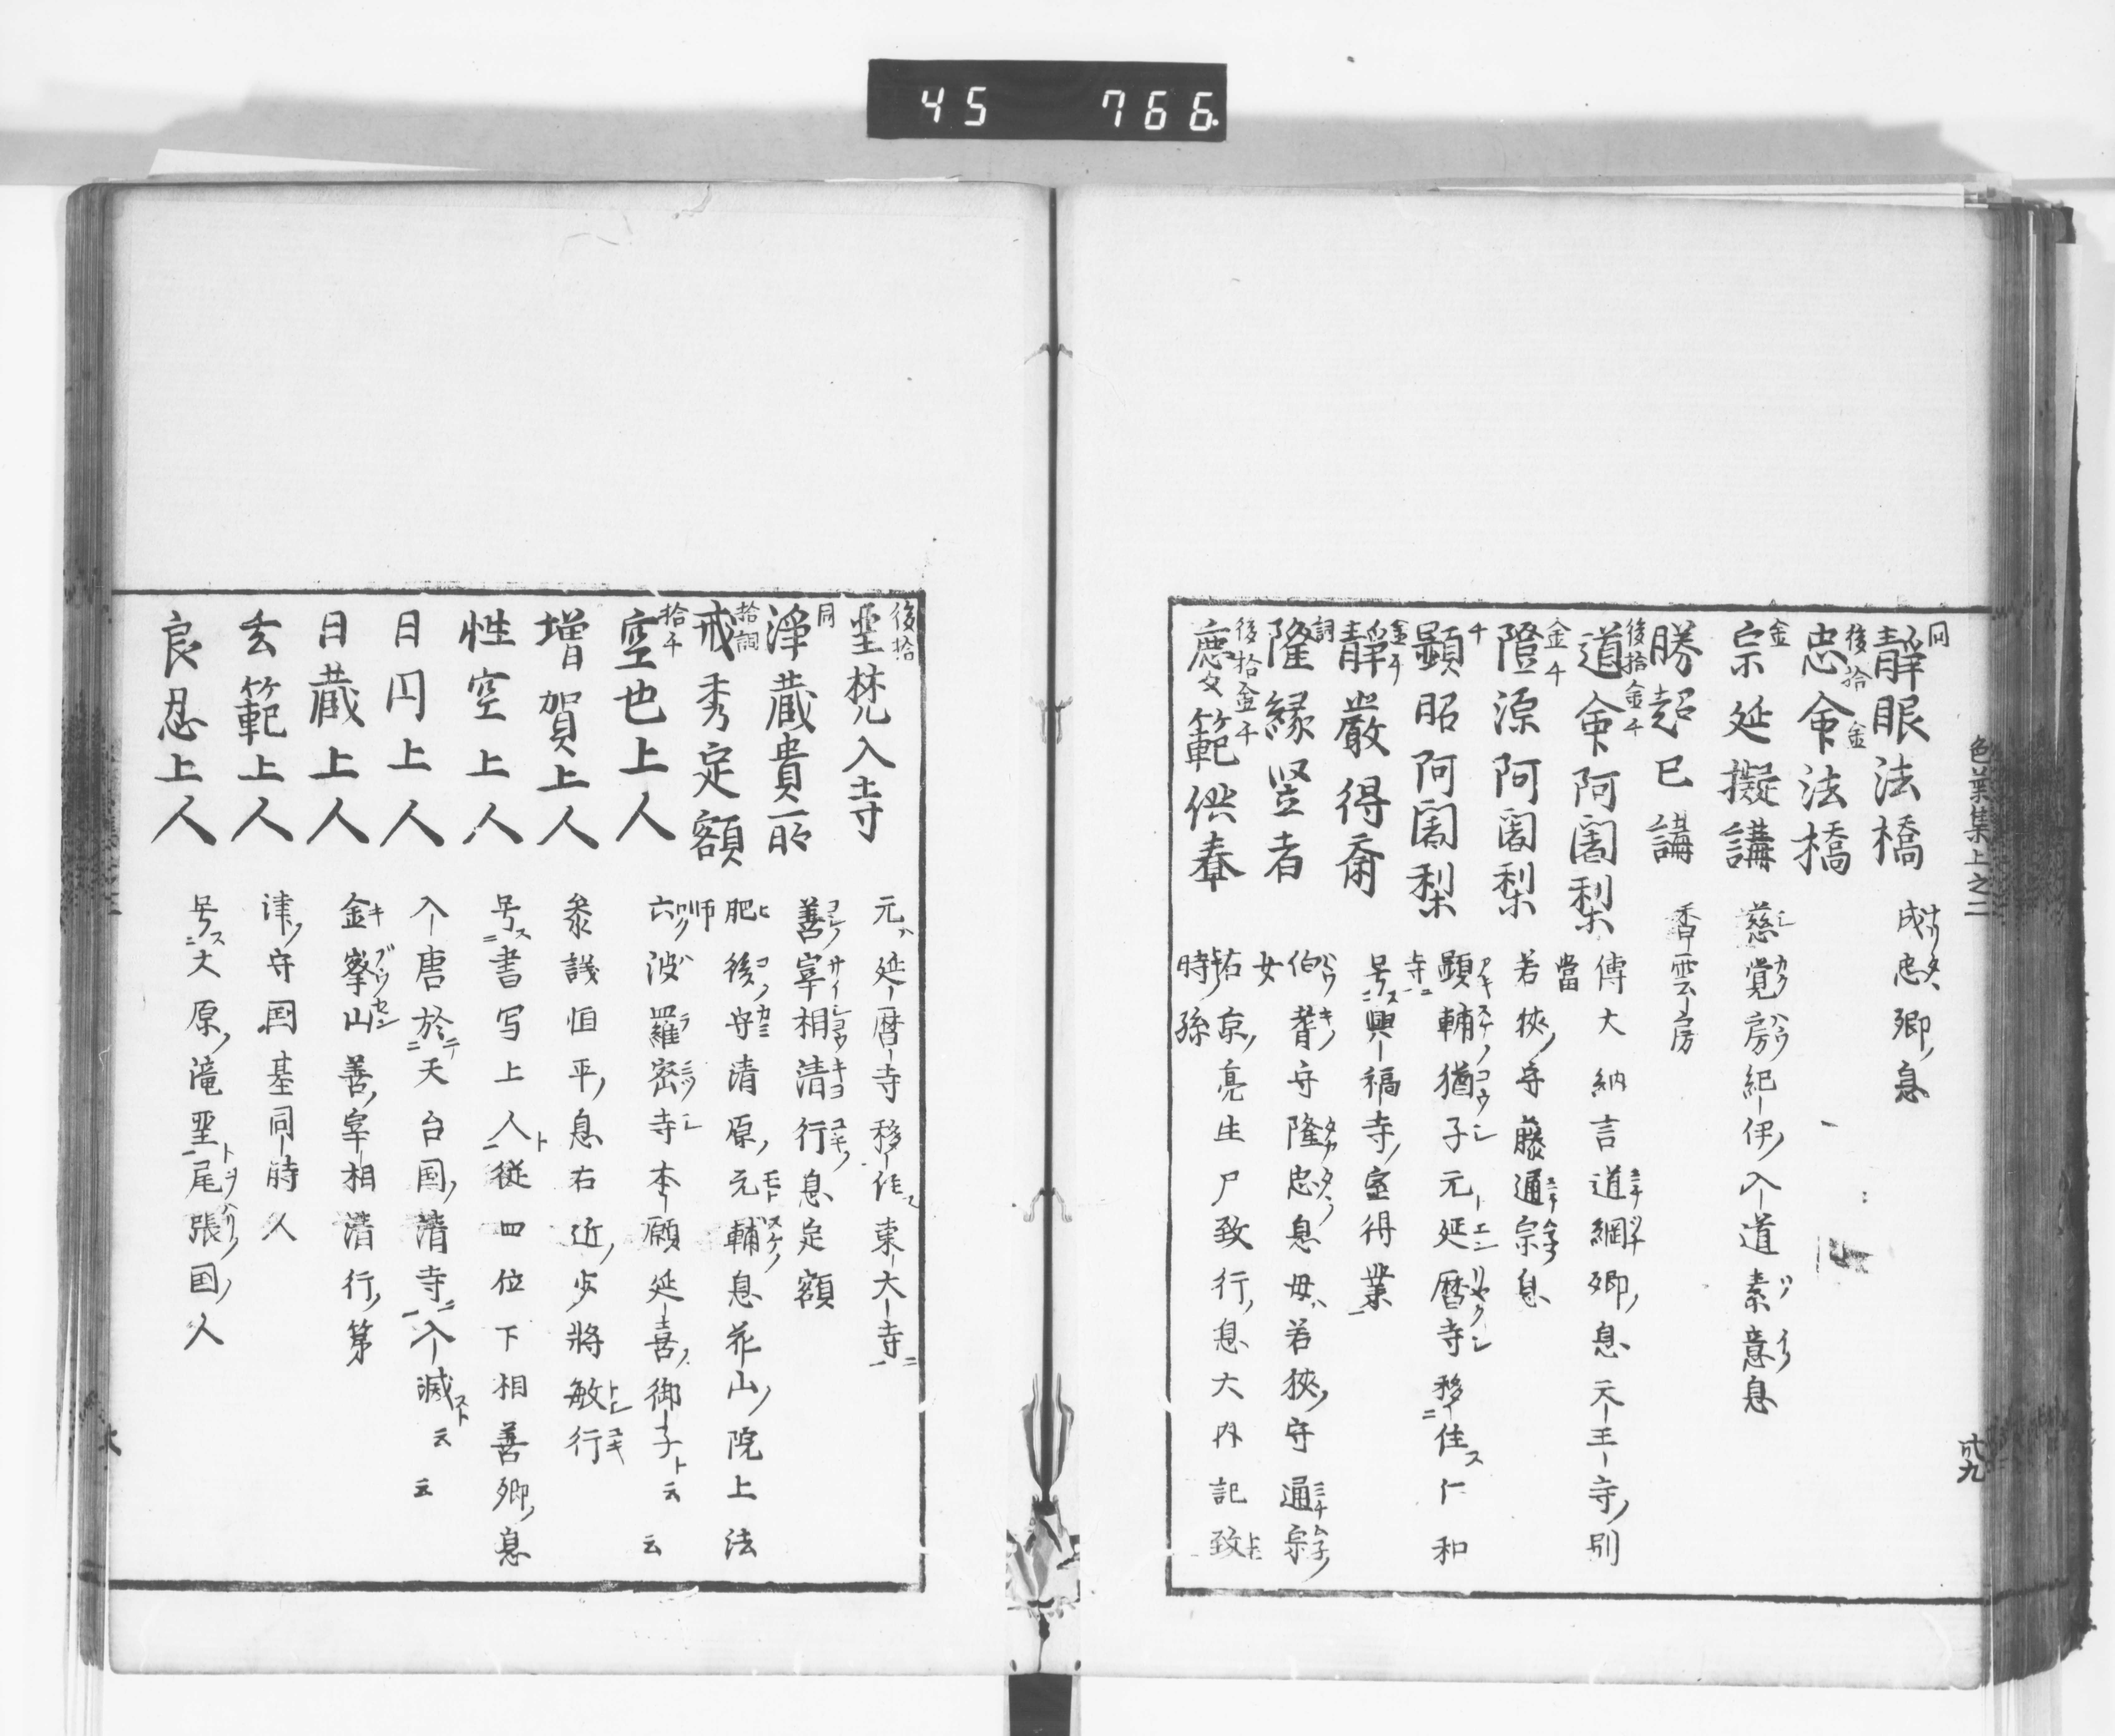 45 766
色葉集上之二
同
静眼法橋 成忠卿ノ息
後拾 金
忠命法橋
金
宗延擬講 慈覚房紀伊ノ入道素意息
勝超已講 香雲房
後拾金千
道命阿闍梨 傅大納言道綱卿ノ息天王寺ノ別
當
金千
隆源阿闍梨 若狹ノ守藤通宗息
千
顕昭阿闍梨 顕輔猶子元延暦寺移住ス仁和
寺ニ
金千
静厳得業 号ス興福寺ノ室得業
詞
隆縁竪者 伯耆守隆忠息母ハ若狹ノ守通宗ノ
女
後拾金千
慶範供奉 右京ノ亮生尸致行ノ息大内記致
時ノ孫
後拾
聖梵入寺 元ハ延暦寺移住ス東大寺ニ
同
淨蔵貴所 善宰相清行息定額
拾詞
戒秀定額 肥後守清原ノ元輔息花山ノ院上法
師
拾千
空也上人 六波羅密寺本願延喜ノ御子ト云云
増賀上人 参議恒平ノ息右近ノ少將敏行
性空上人 号ス書写上人ト従四位下相善卿ノ息
日円上人 入唐於テ天台国ノ清寺ニ入滅スト云云
日蔵上人 金峯山善宰相清行ノ第
玄範上人 津ノ守国基同時人
良忍上人 号ス大原ノ滝聖ト尾張ノ国ノ人
廿九